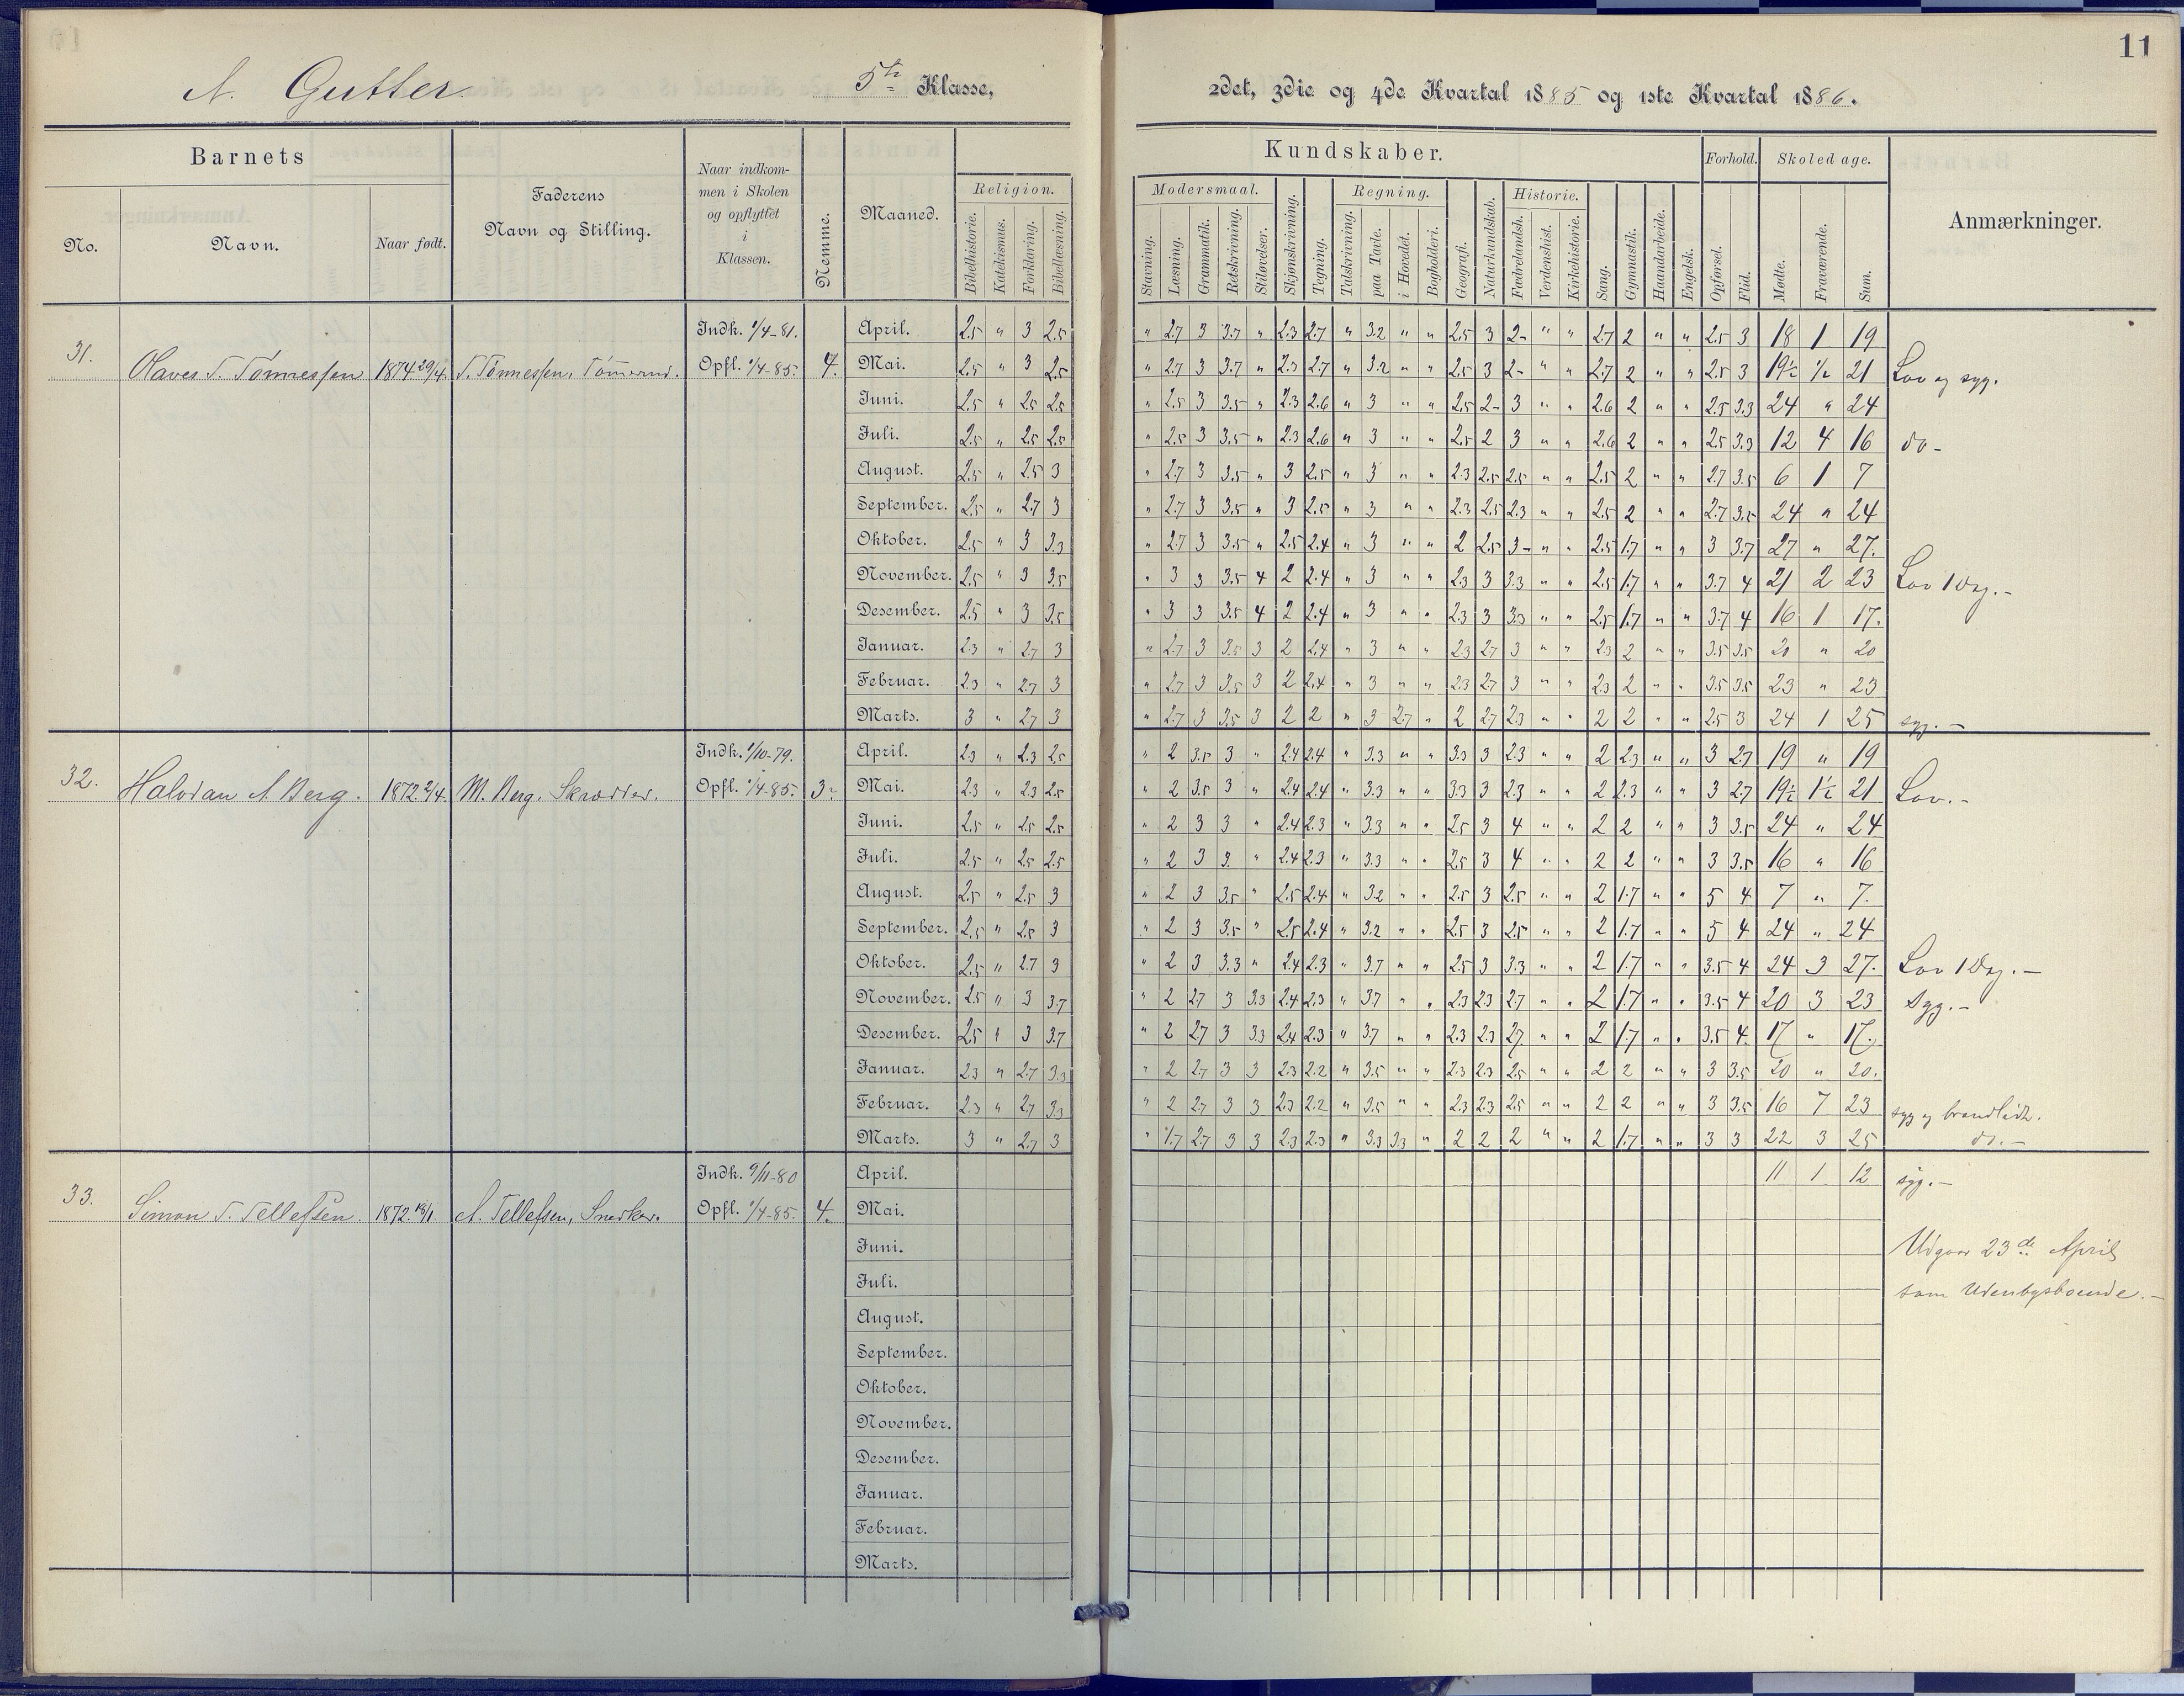 11
A. Gutter. 5te Klasse, 2det, 3die og 4de Kvartal 1885 og 1ste Kvartal 1886.
Barnets
No.
Navn.
Naar født.
Faderens
Navn og Stilling.
Naar indkom-
men i Skolen
og opflyttet
i
Klassen.
Nemme.
Maaned.
Kundskaber.
Religion.
Bibelhistorie.
Katekismus.
Forklaring.
Bibellæsning.
Modersmaal.
Stavning.
Læsning.
Grammatik.
Retskrivning.
Stiløvelser.
Skjønskrivning.
Tegning.
Regning.
Talskrivning.
paa Tavle.
i Hovedet.
Bogholderi.
Geografi.
Naturkundskab.
Historie.
Fædrelandsh.
Verdenshist.
Kirkehistorie.
Sang.
Gymnastik.
Haandarbeide.
Engelsk.
Forhold.
Opførsel.
Flid.
Skoledage.
Mødte.
Fraværende.
Sum.
Anmærkninger.
31. Olaves T. Tønnessen 1874 29/4 T. Tønnessen, Tømmermd. Indk. 1/4-81. Opfl. 1/4-85. 4.
April. 2.5 " 3 2.5 " 2.7 3 3.7 " 2.3 2.7 " 3.2 " " 2.5 3 2- " " 2.7 2 " " 2.5 3 18 1 19
Mai. 2.5 " 3 2.5 " 2.7 3 3.7 " 2.3 2.7 " 3.2 " " 2.5 3 2- " " 2.7 2 " " 2.5 3 19½ 1½ 21 Lov og syg.
Juni. 2.5 " 2.5 2.5 " 2.5 3 3.5 " 2.3 2.6 " 3 " " 2.5 2- 3 " " 2.6 2 " " 2.5 3.3 24 " 24
Juli. 2.5 " 2.5 2.5 " 2.5 3 3.5 " 2.3 2.6 " 3 " " 2.5 2 3 " " 2.6 2 " " 2.5 3.3 12 4 16 do-
August. 2.5 " 2.5 3 " 2.7 3 3.5 " 3 2.5 " 3 " " 2.3 2.5 2.5 " " 2.5 2 " " 2.7 3.5 6 1 7
September. 2.5 " 2.7 3 " 2.7 3 3.5 " 3 2.5 " 3 " " 2.3 2.5 2.3 " " 2.5 2 " " 2.7 3.5 24 " 24
Oktober. 2.5 " 3 3.3 " 2.7 3 3.5 " 2.5 2.4 " 3 " " 2 2.5 3- " " 2.5 1.7 " " 3 3.7 27 " 27.
November. 2.5 " 3 3.5 " 3 3 3.5 4 2 2.4 " 3 " " 2.3 3 3.3 " " 2.5 1.7 " " 3.7 4 21 2 23 Lov 1 Dag.-
Desember. 2.5 " 3 3.5 " 3 3 3.5 4 2 2.4 " 3 " " 2.3 3 3.3 " " 2.5 1.7 " " 3.7 4 16 1 17.
Januar. 2.3 " 2.7 3 " 2.7 3 3.5 3 2 2.4 " 3 " " 2.3 2.7 3 " " 2.3 2 " " 3.5 3.5 20 " 20
Februar. 2.3 " 2.7 3 " 2.7 3 3.5 3 2 2.4 " 3 " " 2.3 2.7 3 " " 2.3 2 " " 3.5 3.5 23 " 23
Marts. 3 " 2.7 3 " 2.7 3 3.5 3 2 2 " 3 2.7 " 2 2.7 2.3 " " 2 2 " " 2.5 3 24 1 25 syg.-
32. Halvdan A. Berg. 1872 2/4. M. Berg. Skrædder. Indk. 1/10-79. Opfl. 1/4-85. 3-
April. 2.3 " 2.3 2.5 " 2 3.5 3 " 2.4 2.4 " 3.3 " " 3.3 3 2.3 " " 2 2.3 " " 3 2.7 19 " 19
Mai. 2.3 " 2.3 2.5 " 2 3.5 3 " 2.4 2.4 " 3.3 " " 3.3 3 2.3 " " 2 2.3 " " 3 2.7 19½ 1½ 21 Lov.-
Juni. 2.5 " 2.5 2.5 " 2 3 3 " 2.4 2.3 " 3.3 " " 2.5 3 4 " " 2 2 " " 3 3.5 24 " 24
Juli. 2.5 " 2.5 2.5 " 2 3 3. " 2.4 2.3 " 3.3 " " 2.5 3 4 " " 2 2 " " 3 3.5 16 " 16
August. 2.5 " 2.5 3 " 2 3 3.5 " 2.5 2.4 " 3.2 " " 2.5 3 2.5 " " 2 1.7 " " 5 4 7 " 7.
September. 2.5 " 2.5 3 " 2 3 3.5 " 2.5 2.4 " 3.2 " " 2.5 3 2.5 " " 2 1.7 " " 5 4 24 " 24
Oktober. 2.5 " 2.7 3 " 2 3 3.3 " 2.4 2.3 " 3.7 " " 2.5 3 3.3 " " 2 1.7 " " 3.5 4 24 3 27. Lov 1 Dag.-
November. 2.5 " 3 3.7 " 2 2.7 3 3.3 2.4 2.3 " 3.7 " " 2.3 2.3 2.7 " " 2 1.7 " " 3.5 4 20 3 23 Syg.-
Desember. 2.5 " 3 3.7 " 2 2.7 3 3.3 2.4 2.3 " 3.7 " " 2.3 2.3 2.7 " " 2 1.7 " " 3.5 4. 17 " 17.
Januar. 2.3 " 2.7 3.3 " 2 2.7 3 3 2.3 2.2 " 3.5 " " 2.3 2.3 2.5 " " 2 2 " " 3 3.5 20 " 20.
Februar. 2.3 " 2.7 3.3 " 2 2.7 3 3 2.3 2.2 " 3.5 " " 2.3 2.3 2.5 " " 2 2 " " 3 3.5 16 7 23 syg og
Marts. 3 " 2.7 3 " 1.7 2.7 3 3 2.3 2.3 " 3.3 3.3 " 2 2 2 " " 2 1.7 " " 3 3 22 3 25 do.-
33. Simon T. Tellefsen. 1872. A. Tellefsen, Snedker. Indk. 9/11-80 Opfl. 1/4-85. 4.
April. 11 1 12 syg.-
Mai.
Juni. Udgaar 23de April
Juli. som Udenbysboende.-
August.
September.
Oktober.
November.
Desember.
Januar.
Februar.
Marts.